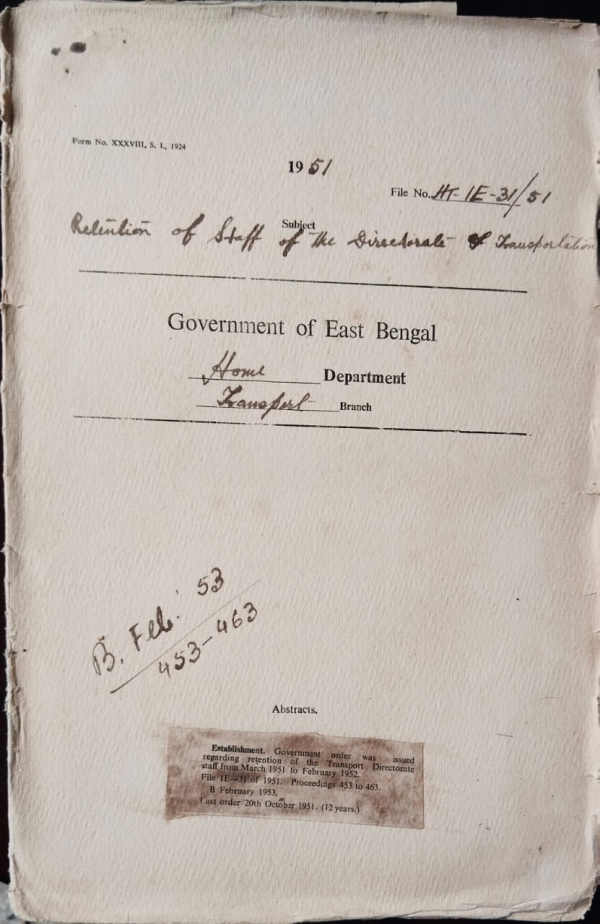 Form No. XXXVIII, S. I., 1924
1951
File No. HT-1E-31/51
Subject
Retention of Staff of the Directorate of Transportation
Government of East Bengal
Home Department
Transport Branch
B. Feb. 53
453-463
Abstracts.
Establishment. Government order was issued
regarding retention of the Transport Directorate
staff from March 1951 to February 1952.
File 1E-31 of 1951. Proceedings 453 to 463.
B February 1953.
Last order 20th October 1951. (12 years.)